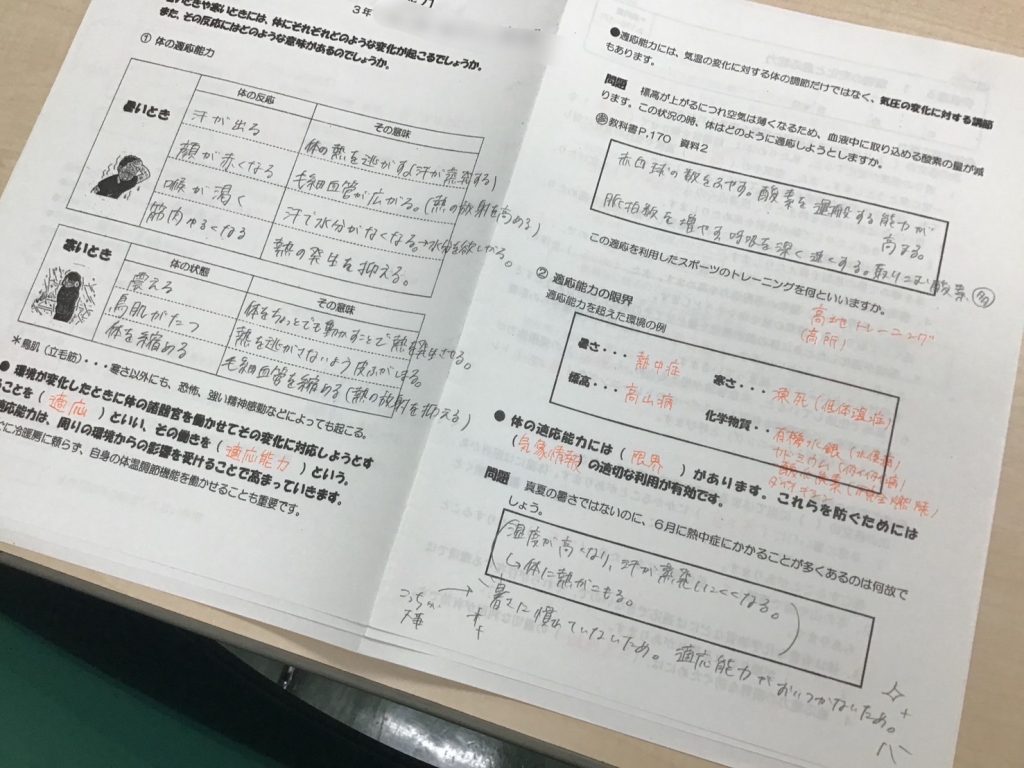 3年
いときや寒いときには、体にそれぞれどのような変化が起こるでしょうか。
また、その反応にはどのような意味があるのでしょうか。
① 体の適応能力
暑いとき
体の反応
その意味
汗が出る
体の熱を逃がす(汗が蒸発する)
顔が赤くなる
毛細血管が広がる。(熱の放射を高める)
喉が渇く
汗で水分がなくなる。→水分を欲しがる。
筋肉ゆるくなる
熱の発生を抑える。
寒いとき
体の状態
その意味
震える
体をちょっとでも動かすことで熱を発生させる。
鳥肌がたつ
熱を逃がさないよう皮ふがしまる。
体を縮める
毛細血管を縮める(熱の放射を抑える)
*鳥肌(立毛筋)・・・寒さ以外にも、恐怖、強い精神感動などによっても起こる。
● 環境が変化したときに体の諸器官を働かせてその変化に対応しようとす
ることを( 適応 )といい、その働きを( 適応能力 )という。
適応能力は、周りの環境からの影響を受けることで高まっていきます。
ぐに冷暖房に頼らず、自身の体温調節機能を働かせることも重要です。
●適応能力には、気温の変化に対する体の調節だけではなく、気圧の変化に対する調節
もあります。
問題 標高が上がるにつれ空気は薄くなるため、血液中に取り込める酸素の量が減
ります。この状況の時、体はどのように適応しようとしますか。
参教科書P.170 資料2
赤白球の数をふやす。酸素を運般する能力が
高まる。
脈拍数を増やす、呼吸を深く速くする。取りこむ酸素 多
この適応を利用したスポーツのトレーニングを何といいますか。
高地トレーニング
(高所)
② 適応能力の限界
適応能力を超えた環境の例
暑さ・・・ 熱中症
寒さ・・・ 凍死(低体温症)
標高・・・ 高山病
化学物質・・ 有機水銀(水俣病)
カドミウム(イタイイタイ病)
● 体の適応能力には( 限界 )があります。これらを防ぐためには
(気象情報)の適切な利用が有効です。
問題 真夏の暑さではないのに、6月に熱中症にかかることが多くあるのは何故で
しょう。
湿度が高くなり、汗が蒸発しにくくなる。
↳体に熱がこもる。
こっちが大事 →
暑さに慣れていないため。適応能力がおいつかないため。